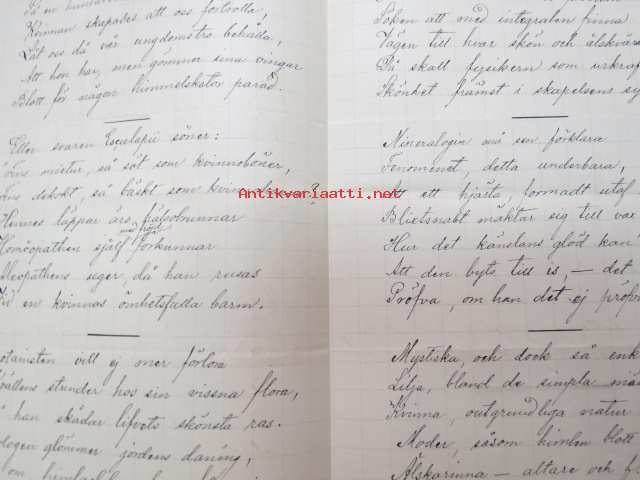 Kvinnan skapades att oss förtrolla,
Låt oss då vår ungdomstro behålla,
Att hon har, men gömmer sina vingar
Blott för någon himmelsk parad.
Eller svaren Esculapii söner:
Fins mixtur, så söt som kvinnoböner,
Fins dekokt, så bäskt som
Hennes läppar äro hälsobrunnar
Homöopathen sjelf med fröjd förkunnar
Alleopathens seger, då han rusas
Vid en kvinnas ömhetsfulla barm.
Botanisten vill ej mer förlora
stunder hos sin vissna flora,
han skådar lifvets skönsta ros.
logen glömmer jordens daning,
Söken att med integralen finna
Vägen till hvar skön och älskvärd
Så skall fysikern som urkraf
Skönhet främst i skapelsens sy
Mineralogin må sen förklara
Fenomenet, detta underbara,
Att ett hjärta, formadt utaf
Blixtsnabt mäktar sig till vax
Hur det känslans glöd kan
Att den byts till is, — det
Pröfva, om han det ej pröfva
Mystiska, och dock så enk
Lilja, bland de simpla män
Kvinna, outgrundliga natur
Moder, såsom himlen blott
Älskarinna — altare och
Antikvariaatti.net